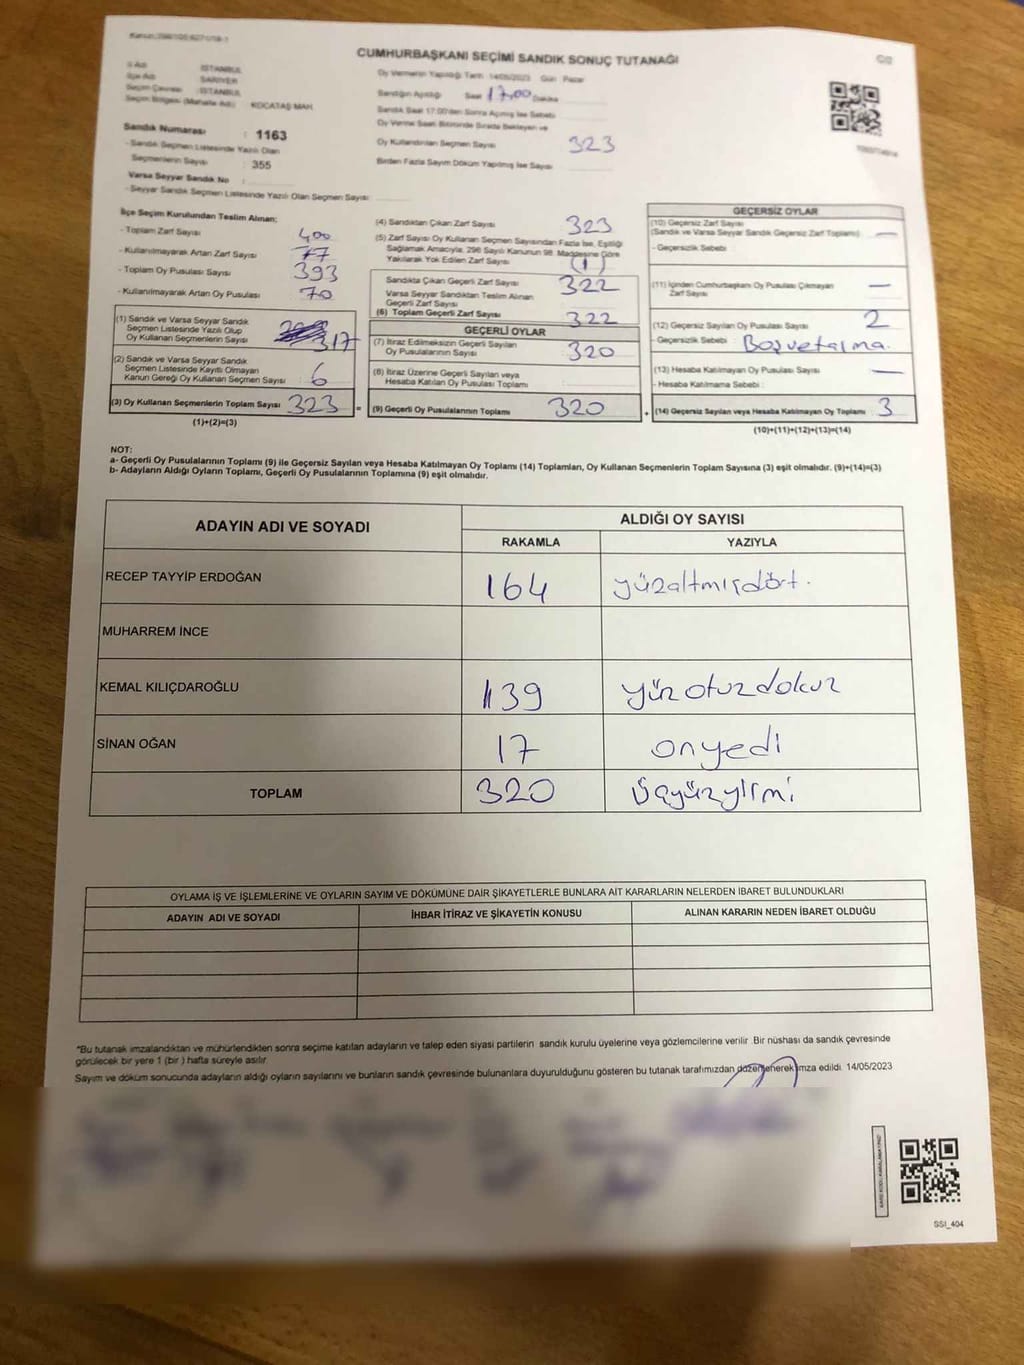 CUMHURBAŞKANI SEÇİMİ SANDIK SONUÇ TUTANAĞI
İl Adı İSTANBUL
İlçe Adı SARIYER
Seçim Çevresi : İSTANBUL
Seçim Bölgesi (Mahalle Adı) : KOCATAŞ MAH.
Oy Vermenin Yapıldığı Tarih 14/05/2023 Gün Pazar
Sandığın Açıldığı Saat 17,00 Dakika
Sandık Saat 17:00'den Sonra Açılmış İse Sebebi
Oy Verme Saati Bitiminde Sırada Bekleyen ve
Oy Kullandırılan Seçmen Sayısı 323
Birden Fazla Sayım Döküm Yapılmış İse Sayısı
Sandık Numarası : 1163
- Sandık Seçmen Listesinde Yazılı Olan
Seçmenlerin Sayısı : 355
Varsa Seyyar Sandık No :
- Seyyar Sandık Seçmen Listesinde Yazılı Olan Seçmen Sayısı
İlçe Seçim Kurulundan Teslim Alınan;
- Toplam Zarf Sayısı 400
- Kullanılmayarak Artan Zarf Sayısı 77
- Toplam Oy Pusulası Sayısı 393
- Kullanılmayarak Artan Oy Pusulası 70
(1) Sandık ve Varsa Seyyar Sandık
Seçmen Listesinde Yazılı Olup
Oy Kullanan Seçmenlerin Sayısı 317
(2) Sandık ve Varsa Seyyar Sandık
Seçmen Listesinde Kayıtlı Olmayan
Kanun Gereği Oy Kullanan Seçmen Sayısı : 6
(3) Oy Kullanan Seçmenlerin Toplam Sayısı 323 =
(1)+(2)=(3)
(4) Sandıktan Çıkan Zarf Sayısı 323
(5) Zarf Sayısı Oy Kullanan Seçmen Sayısından Fazla İse, Eşitliği
Sağlamak Amacıyla, 298 Sayılı Kanunun 98. Maddesine Göre
Yakılarak Yok Edilen Zarf Sayısı (1)
Sandıkta Çıkan Geçerli Zarf Sayısı 322
Varsa Seyyar Sandıktan Teslim Alınan
Geçerli Zarf Sayısı
(6) Toplam Geçerli Zarf Sayısı 322
GEÇERLİ OYLAR
(7) İtiraz Edilmeksizin Geçerli Sayılan
Oy Pusulalarının Sayısı 320
(8) İtiraz Üzerine Geçerli Sayılan veya
Hesaba Katılan Oy Pusulası Toplamı
(9) Geçerli Oy Pusulalarının Toplamı 320 +
GEÇERSİZ OYLAR
(10) Geçersiz Zarf Sayısı
(Sandık ve Varsa Seyyar Sandık Geçersiz Zarf Toplamı) —
- Geçersizlik Sebebi
(11) İçinden Cumhurbaşkanı Oy Pusulası Çıkmayan
Zarf Sayısı —
(12) Geçersiz Sayılan Oy Pusulası Sayısı 2
- Geçersizlik Sebebi
(13) Hesaba Katılmayan Oy Pusulası Sayısı —
- Hesaba Katılmama Sebebi :
(14) Geçersiz Sayılan veya Hesaba Katılmayan Oy Toplamı 3
(10)+(11)+(12)+(13)=(14)
NOT:
a- Geçerli Oy Pusulalarının Toplamı (9) ile Geçersiz Sayılan veya Hesaba Katılmayan Oy Toplamı (14) Toplamları, Oy Kullanan Seçmenlerin Toplam Sayısına (3) eşit olmalıdır. (9)+(14)=(3)
b- Adayların Aldığı Oyların Toplamı, Geçerli Oy Pusulalarının Toplamına (9) eşit olmalıdır.
ADAYIN ADI VE SOYADI ALDIĞI OY SAYISI
RAKAMLA YAZIYLA
RECEP TAYYİP ERDOĞAN 164 yüzaltmışdört.
MUHARREM İNCE
KEMAL KILIÇDAROĞLU 139 yüzotuzdokuz
SİNAN OĞAN 17 onyedi
TOPLAM 320 Üçyüzyirmi
OYLAMA İŞ VE İŞLEMLERİNE VE OYLARIN SAYIM VE DÖKÜMÜNE DAİR ŞİKAYETLERLE BUNLARA AİT KARARLARIN NELERDEN İBARET BULUNDUKLARI
ADAYIN ADI VE SOYADI İHBAR İTİRAZ VE ŞİKAYETİN KONUSU ALINAN KARARIN NEDEN İBARET OLDUĞU
*Bu tutanak imzalandıktan ve mühürlendikten sonra seçime katılan adayların ve talep eden siyasi partilerin sandık kurulu üyelerine veya gözlemcilerine verilir. Bir nüshası da sandık çevresinde
görülecek bir yere 1 (bir ) hafta süreyle asılır.
Sayım ve döküm sonucunda adayların aldığı oyların sayılarını ve bunların sandık çevresinde bulunanlara duyurulduğunu gösteren bu tutanak tarafımızdan düzenlenerek imza edildi. 14/05/2023
SSI_404